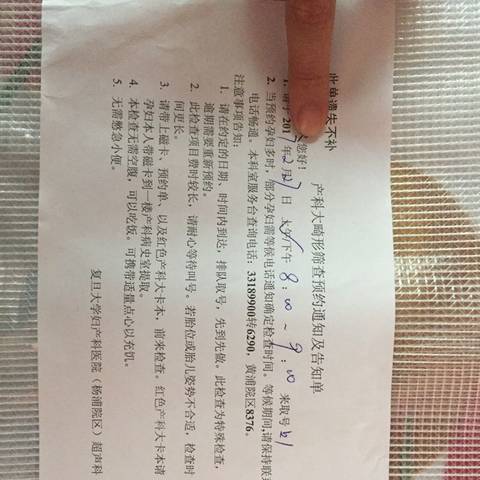 此单遗失不补
产科大畸形筛查预约通知及告知单
您好!
1. 请于 2017年 2月 27日 上午/下午 8:00 ~ 9:00 来取号
2. 当预约孕妇多时,部分孕妇需等候电话通知确定检查时间。等候期间,请保持联系
电话畅通。本科室服务台查询电话:33189900转6290,黄浦院区8376。
注意事项告知:
1. 请在约定的日期、时间内到达,排队取号,先到先做。此检查为特殊检查,
逾期需要重新预约。
2. 此检查项目费时较长,请耐心等待叫号。若胎位或胎儿姿势不合适,检查时
间更长。
3. 请带上磁卡、预约单、以及红色产科大卡本,前来检查。红色产科大卡本请
孕妇本人带磁卡到一楼产科病史室提取。
4. 本检查无需空腹,可以吃饭。可携带适量点心以充饥。
5. 无需憋急小便。
复旦大学妇产科医院(杨浦院区)超声科